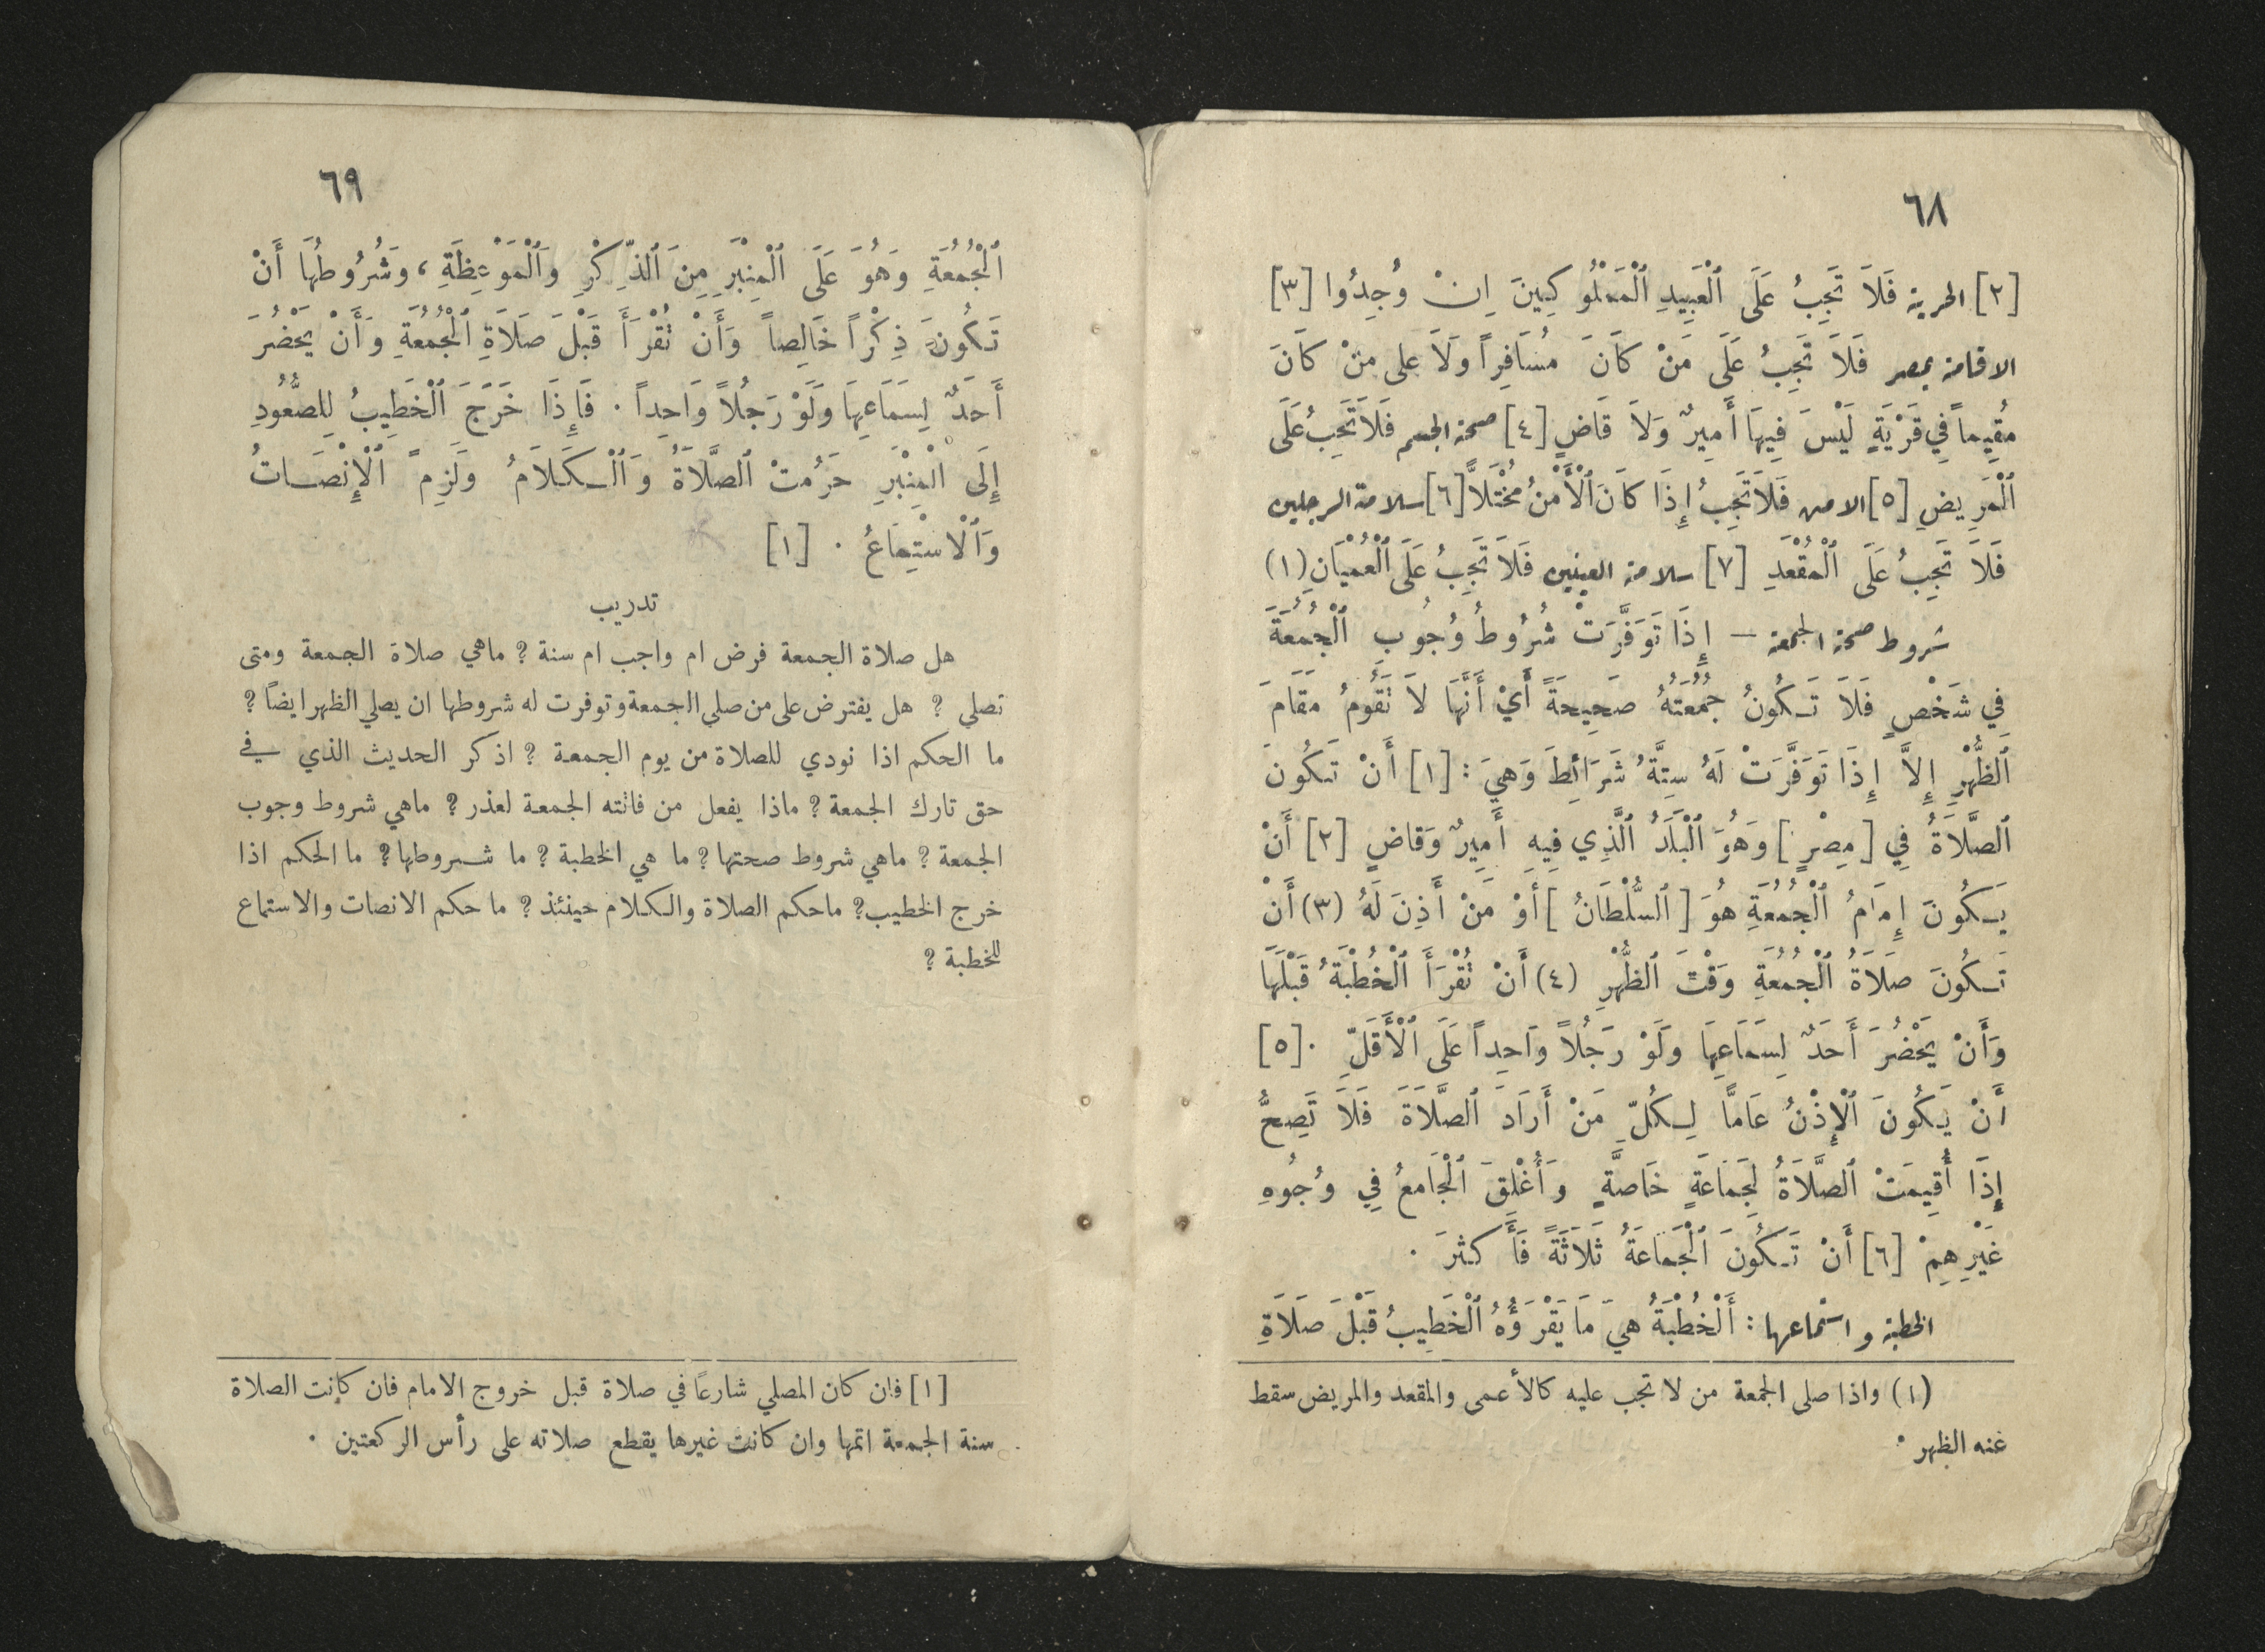 ٦٨
[٢] الحرية فَلاَ تَجِبُ عَلَى ٱلْعَبِيدِ ٱلْمَمْلُوكِينَ اِنْ وُجِدُوا [٣]
الاقامة بمصر فَلاَ تَجِبُ عَلَى مَنْ كَانَ مُسَافِراً وَلاَ على مَنْ كَانَ
مُقِيماً فِي قَرْيَةٍ لَيْسَ فِيهَا أَمِيرٌ وَلاَ قَاضٍ [٤] صحة الجسم فَلاَ تَجِبُ عَلَى
ٱلْمَرِيضِ [٥] الامن فَلاَ تَجِبُ إِذَا كَانَ ٱلْأَمْنُ مُخْتَلاًّ [٦] سلامة الرجلين
فَلاَ تَجِبُ عَلَى ٱلْمُقْعَدِ [٧] سلامة العينين فَلاَ تَجِبُ عَلَى ٱلْعُمْيَانِ (١)
شروط صحة الجمعة — إِذَا تَوَفَّرَتْ شُرُوطُ وُجُوب ٱلْجُمُعَةَ
فِي شَخْصٍ فَلاَ تَكُونُ جُمُعَتُهُ صَحِيحَةً أَيْ أَنَّهَا لاَ تَقُومُ مَقَامَ
ٱلظُّهْرِ إِلاَّ إِذَا تَوَفَّرَتْ لَهُ سِتَّةُ شَرَائِطَ وَهِيَ : [١] أَنْ تَكُونَ
ٱلصَّلاَةُ فِي [مِصْرٍ] وَهُوَ ٱلْبَلَدُ ٱلَّذِي فِيهِ أَمِيرٌ وَقَاضٍ [٢] أَنْ
يَكُونَ إِمَامُ ٱلْجُمُعَةِ هُوَ [ٱلسُّلْطَانُ] أَوْ مَنْ أَذِنَ لَهُ (٣) أَنْ
تَكُونَ صَلاَةُ ٱلْجُمُعَةِ وَقْتَ ٱلظُّهْرِ (٤) أَنْ تُقْرَأَ ٱلْخُطْبَةُ قَبْلَهَا
وَأَنْ يَحْضُرَ أَحَدٌ لِسَمَاعِهَا وَلَوْ رَجُلاً وَاحِداً عَلَى ٱلْأَقَلِّ . [٥]
أَنْ يَكُونَ ٱلْإِذْنُ عَامًّا لِكُلِّ مَنْ أَرَادَ ٱلصَّلاَةَ فَلاَ تَصِحُّ
إِذَا أُقِيمَتْ ٱلصَّلاَةُ لِجَمَاعَةٍ خَاصَّةٍ وَأُغْلِقَ ٱلْجَامِعُ فِي وُجُوهِ
غَيْرِهِمْ [٦] أَنْ تَكُونَ ٱلْجَمَاعَةُ ثَلاَثَةً فَأَكثَرَ .
الخطبة و استماعها : أَلْخُطْبَةُ هِيَ مَا يَقْرَؤُهُ ٱلْخَطِيبُ قَبْلَ صَلاَةِ
(١) واذا صلى الجمعة من لا تجب عليه كالأعمى والمقعد والمريض سقط
عنه الظهر .
٦٩
ٱلْجُمُعَةِ وَهُوَ عَلَى ٱلْمِنْبَرِ مِنَ ٱلذِّكْرِ وَٱلْمَوْعِظَةِ ، وَشُرُوطُهَا أَنْ
تَكُونَ ذِكْراً خَالِصاً وَأَنْ تُقْرَأَ قَبْلَ صَلاَةِ ٱلْجُمُعَةِ وَأَنْ يَحْضُرَ
أَحَدٌ لِسَمَاعِهَا وَلَوْ رَجُلاً وَاحِداً . فَإِذَا خَرَجَ ٱلْخَطِيبُ لِلصُّعُودِ
إِلَى ٱلْمِنْبَرِ حَرُمتْ ٱلصَّلاَةُ وَٱلْكَلاَمُ وَلَزِمَ ٱلْإِنْصَاتُ
وَٱلْاسْتِمَاعُ . [١]
تدريب
هل صلاة الجمعة فرض ام واجب ام سنة ؟ ماهي صلاة الجمعة ومتى
تصلي ؟ هل يفترض على من صلي الجمعة وتوفرت له شروطها ان يصلي الظهر ايضاً ؟
ما الحكم اذا نودي للصلاة من يوم الجمعة ؟ اذكر الحديث الذي في
حق تارك الجمعة ؟ ماذا يفعل من فاتته الجمعة لعذر ؟ ماهي شروط وجوب
الجمعة ؟ ماهي شروط صحتها ؟ ما هي الخطبة ؟ ما شروطها ؟ ما الحكم اذا
خرج الخطيب؟ ماحكم الصلاة والكلام حينئذ ؟ ما حكم الانصات والاستماع
للخطبة ؟
[١] فان كان المصلي شارعاً في صلاة قبل خروج الامام فان كانت الصلاة
سنة الجمعة اتمها وان كانت غيرها يقطع صلاته على رأس الركعتين .